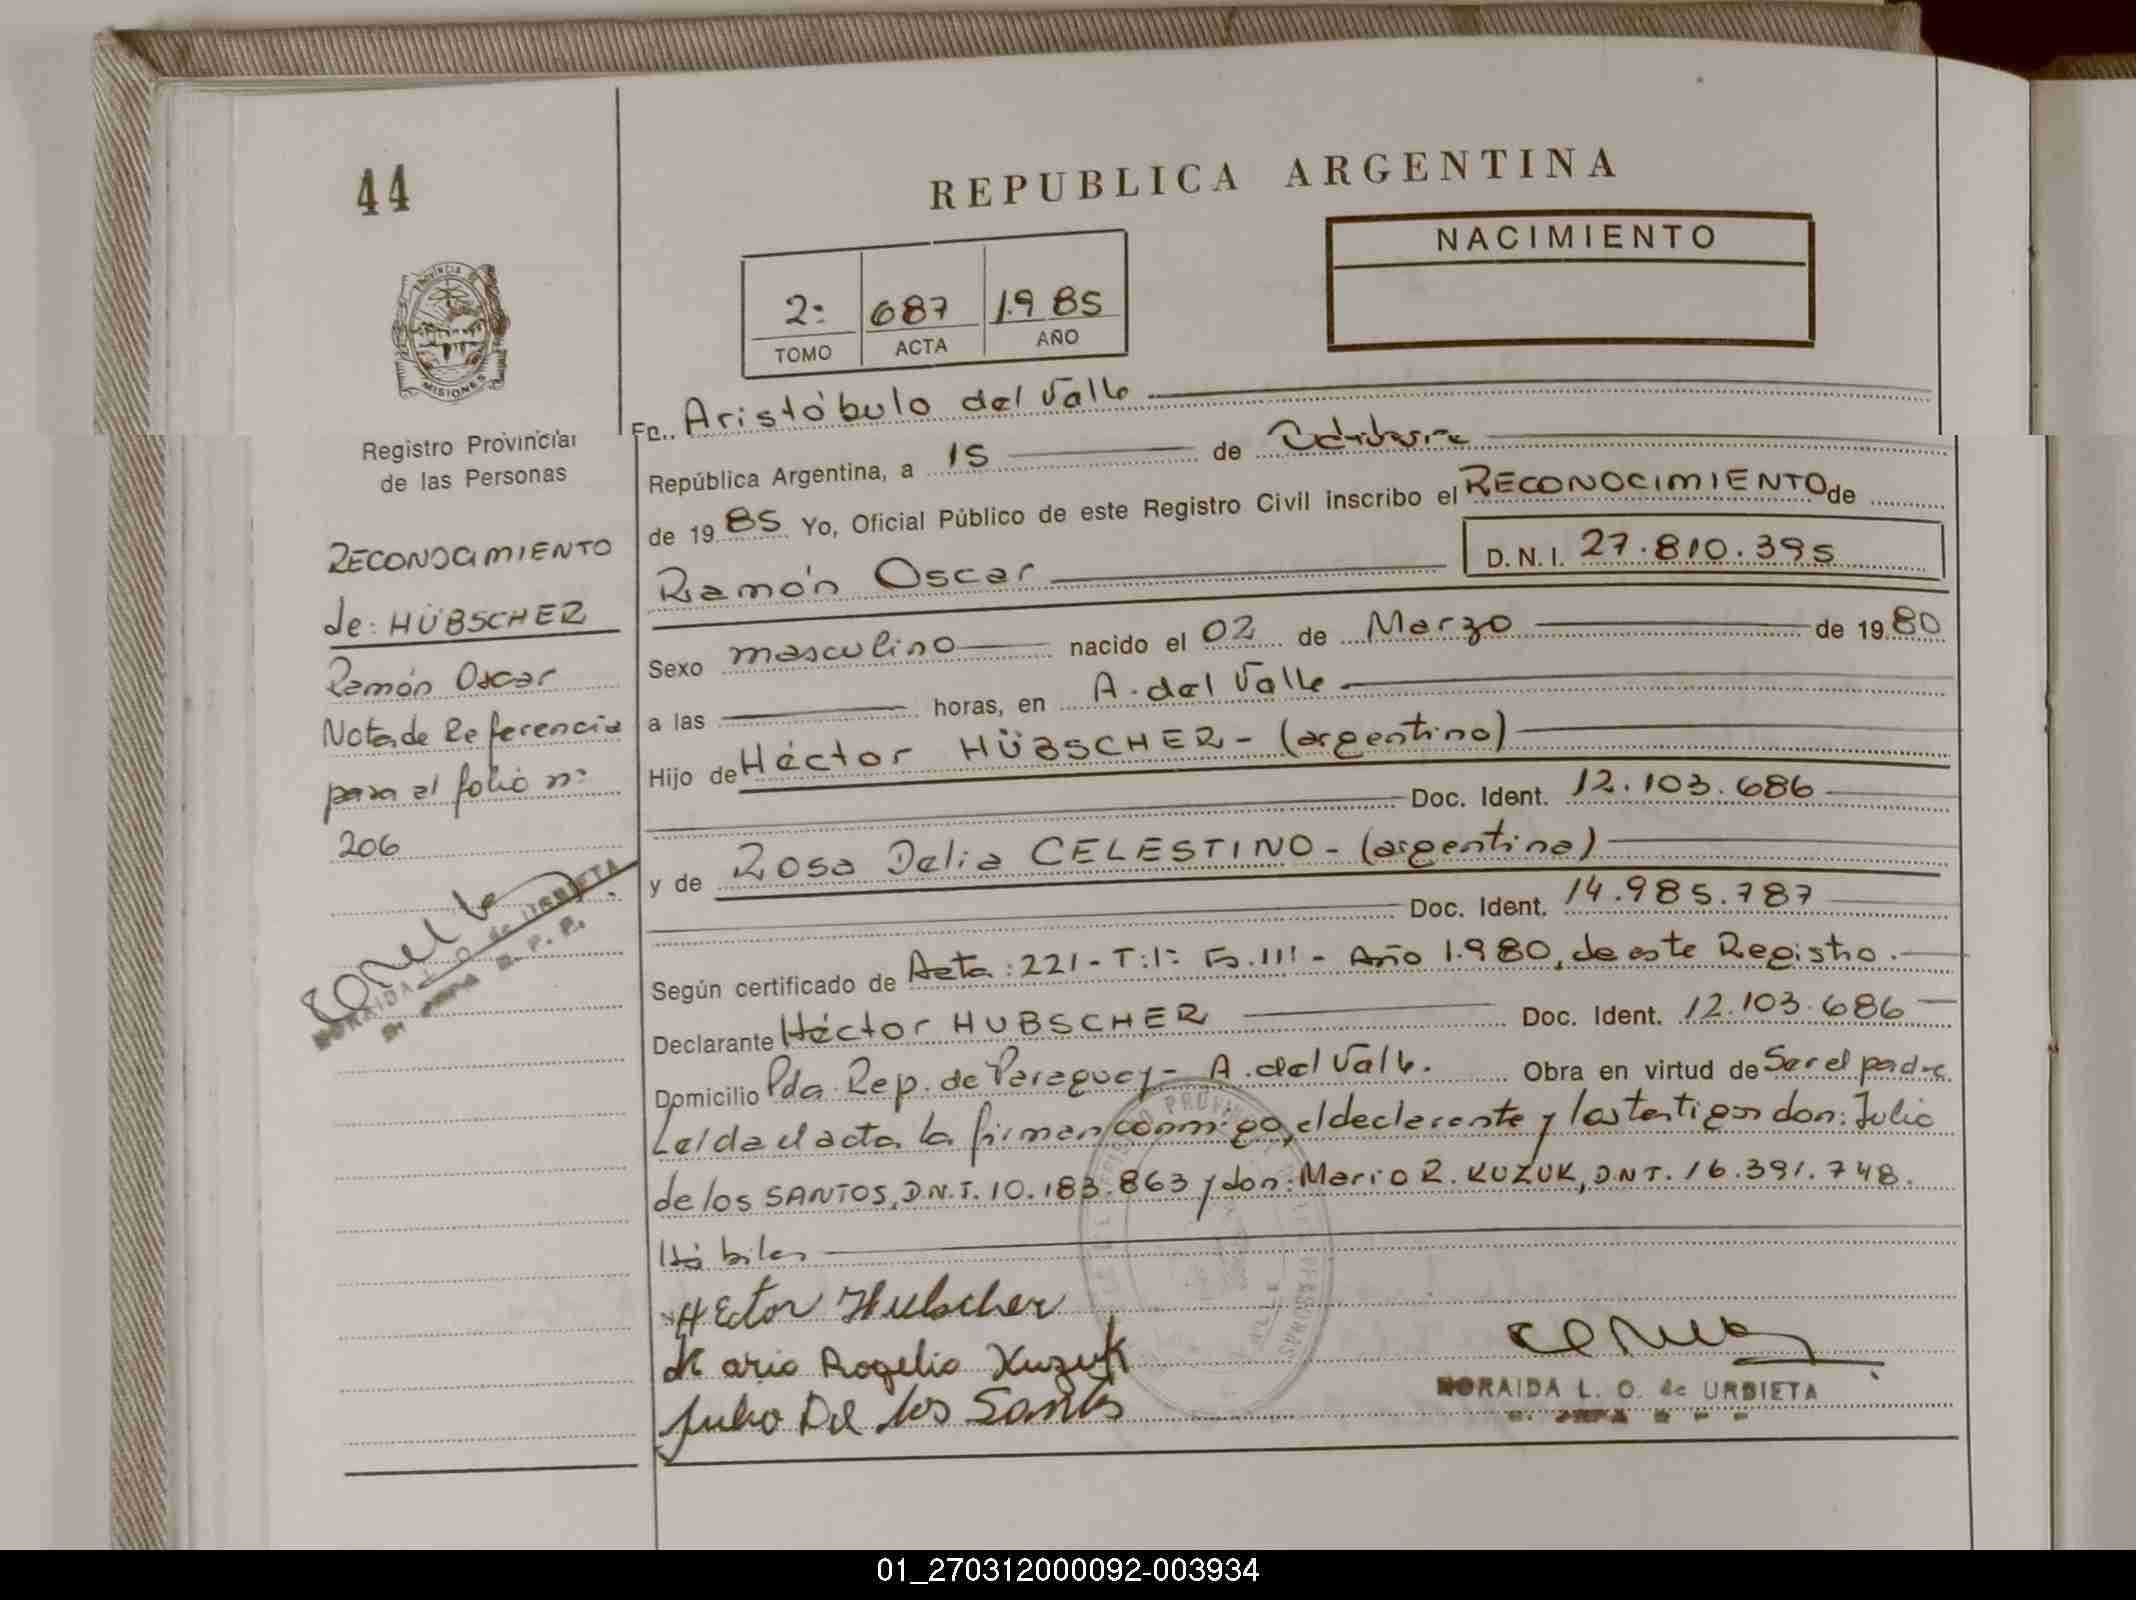 44
REPUBLICA ARGENTINA
NACIMIENTO
2: 687 1.985
TOMO ACTA AÑO
PROVINCIA DE MISIONES
Registro Provincial
de las Personas
RECONOCIMIENTO
de: HÜBSCHER
Ramón Oscar
Nota de Referencia
para el folio nº
206
NORAIDA L. O. de URBIETA
En Aristóbulo del Valle
República Argentina, a 15 de
de 19 85 Yo, Oficial Público de este Registro Civil inscribo el RECONOCIMIENTO de
Ramón Oscar D.N.I. 27.810.395
Sexo masculino nacido el 02 de Marzo de 19 80
a las horas, en A. del Valle
Hijo de Héctor HÜBSCHER - (argentino)
Doc. Ident. 12.103.686
y de Rosa Delia CELESTINO - (argentina)
Doc. Ident. 14.985.787
Según certificado de Acta: 221 - T: 1º Fo. 111 - Año 1.980, de este Registro.
Declarante Héctor HUBSCHER Doc. Ident. 12.103.686
Domicilio Pda. Rep. de Paraguay - A. del Valle. Obra en virtud de Ser el padre
Leída el acta la firman conmigo, el declarante y los testigos don: Julio
de los SANTOS, D.N.I. 10.183.863 y don: Mario R. KUZUK, D.N.I. 16.391.748.
Hábiles
Hector Hubscher
Mario Rogelio Kuzuk
Julio De los Santos
NORAIDA L. O. de URBIETA
01_270312000092-003934